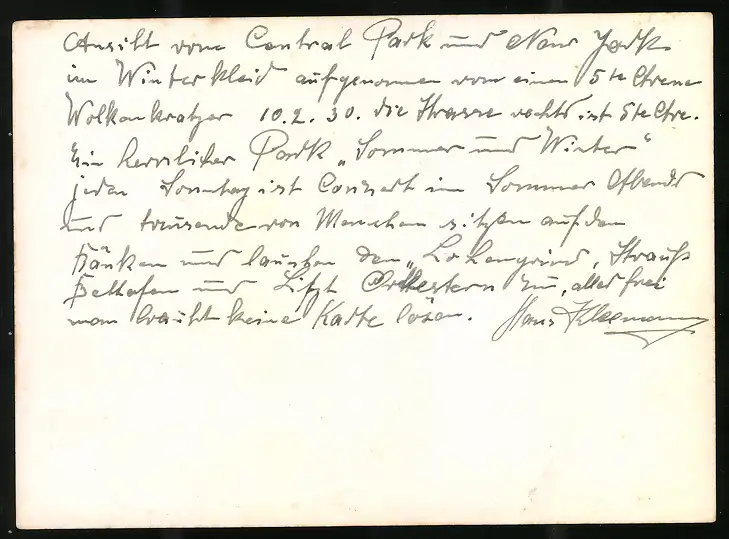 Ansiht vom Central Park und New York
im Winterkleid aufgenommen von einen 5te Avene
Wolkenkratzer 10.2.30. die Strasse rechts ist 5te Ave.
Ein herrlicher Park „Sommer und Winter“
jeden Sonntag ist Conzert im Sommer Abends
und tausende von Menschen sitzen auf den
Bänken und lauschen den „Lohengrind, Strauß
Bethofen und Lißt Orkestern zu, alles frei
man brauht keine Karte lösen. Hans Kleemann